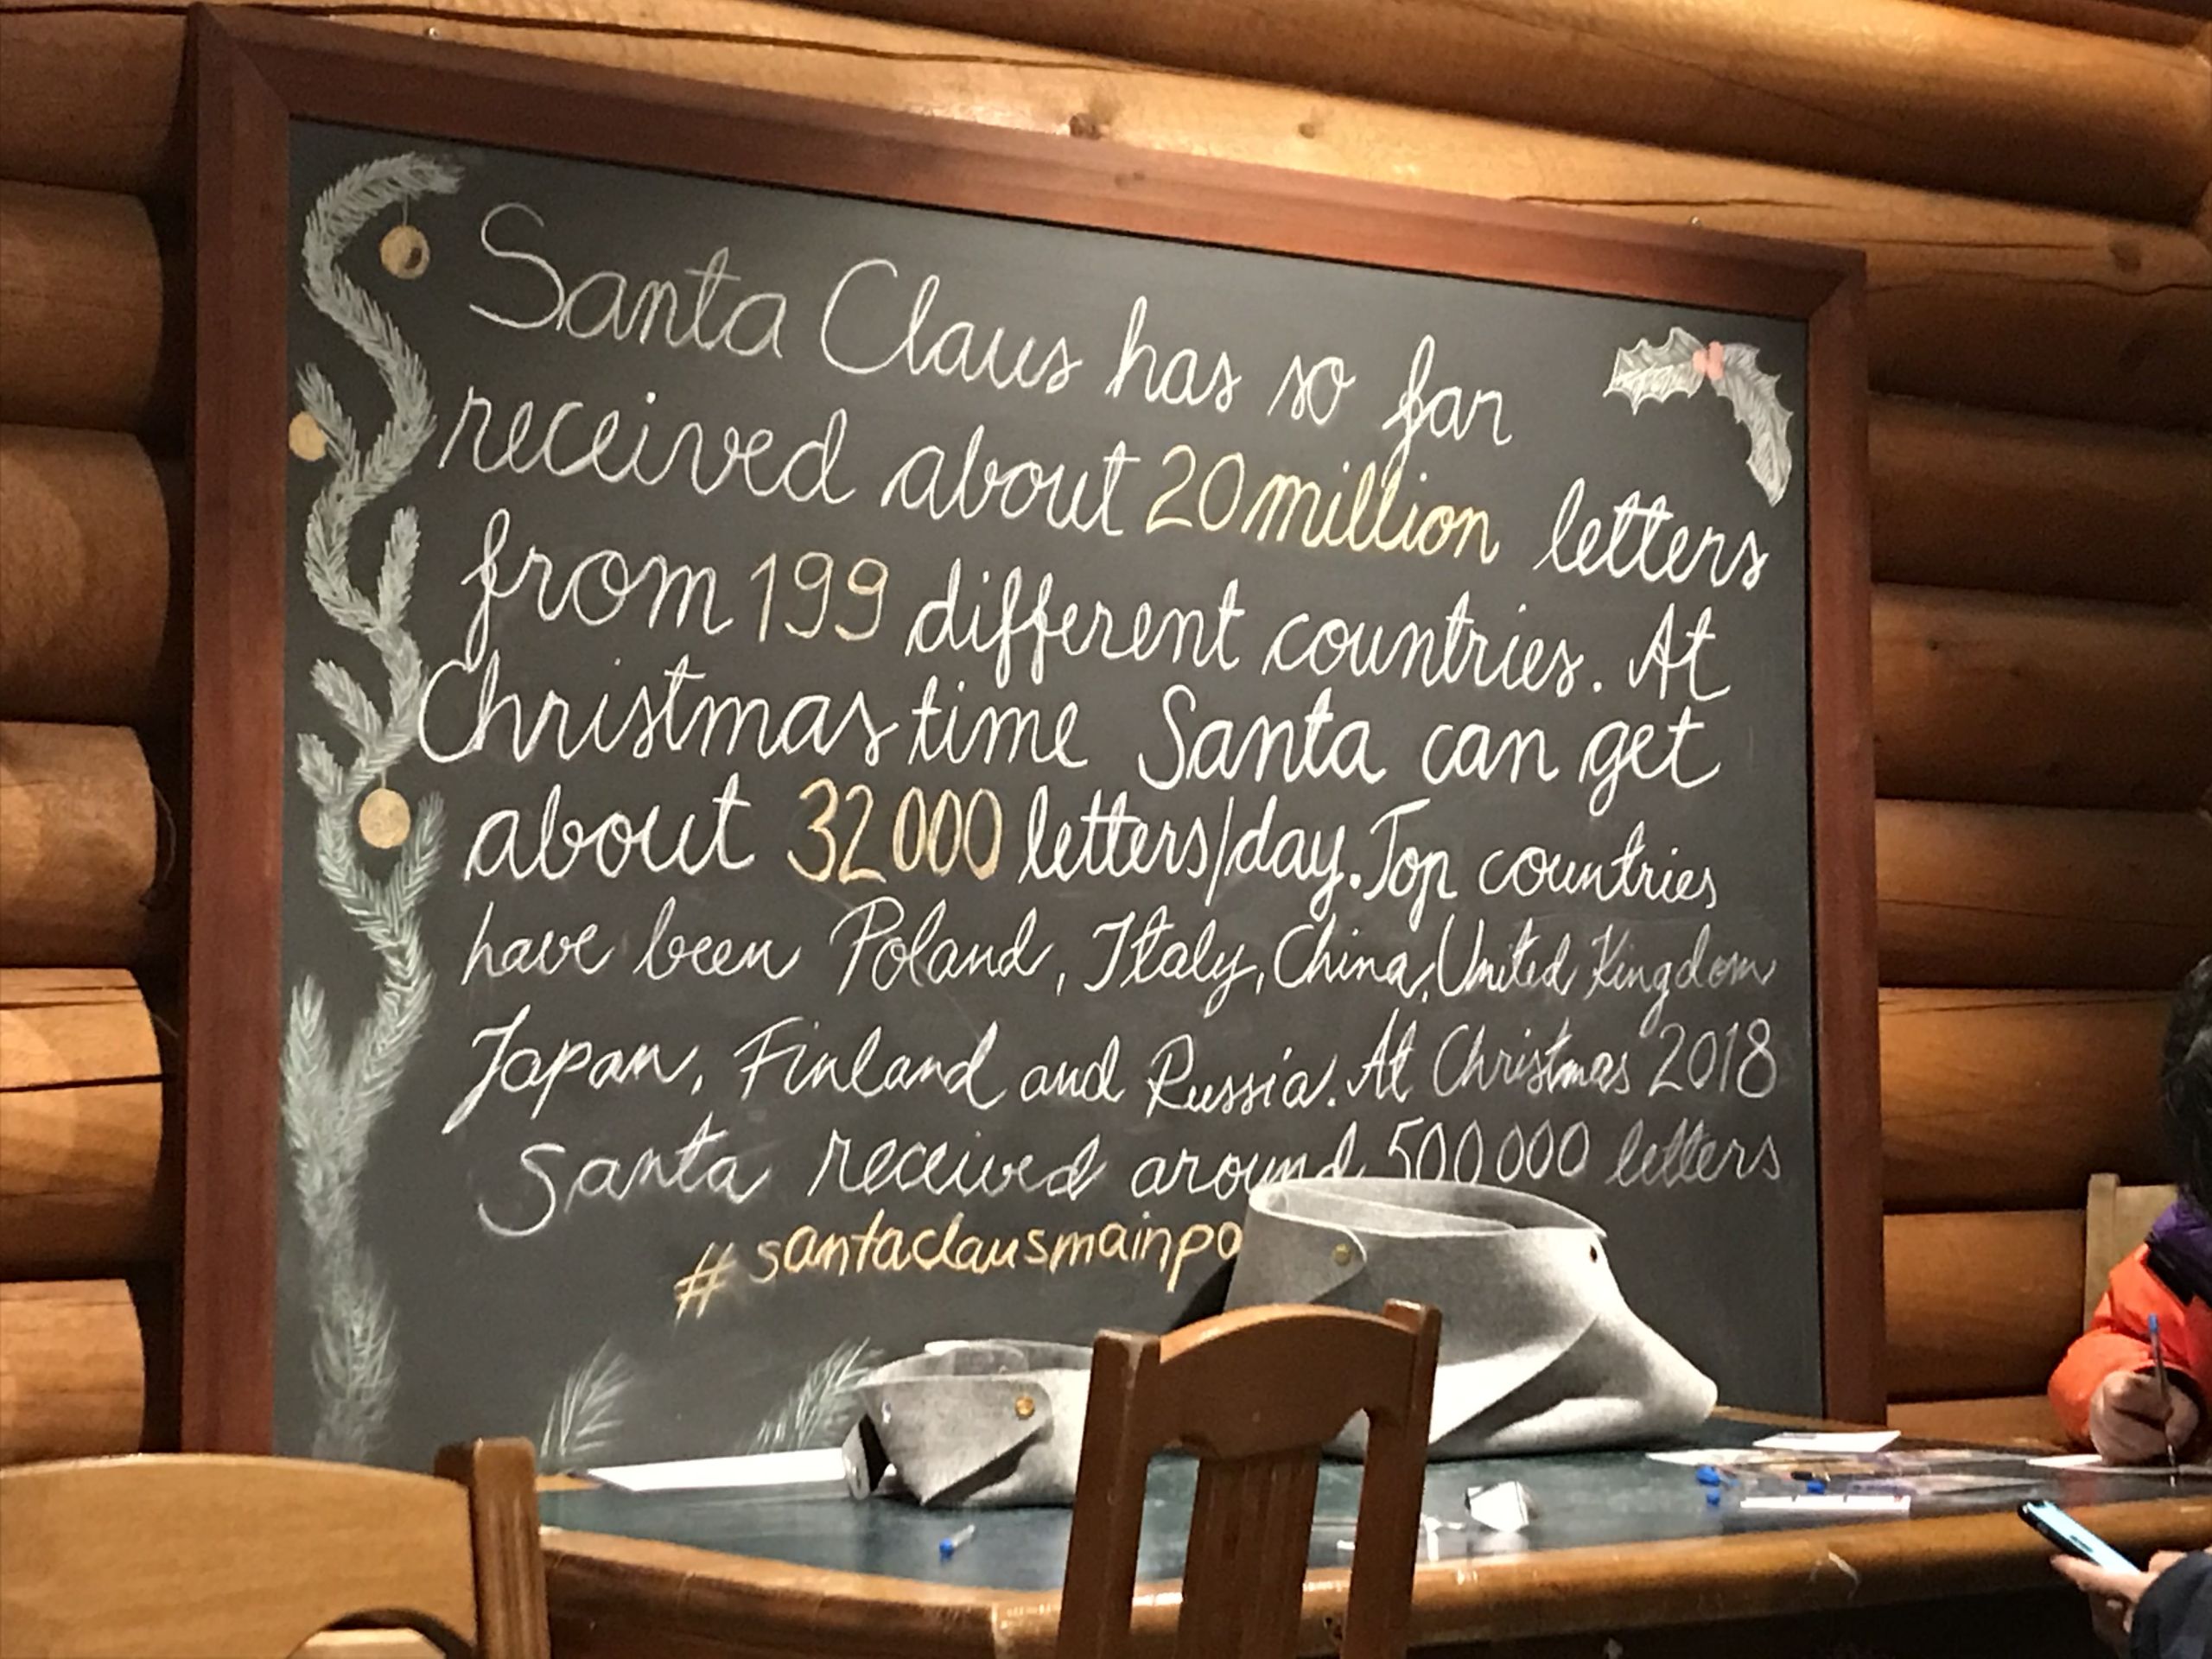 Santa Claus has so far
received about 20 million letters
from 199 different countries. At
Christmas time Santa can get
about 32 000 letters/day. Top countries
have been Poland, Italy, China, United Kingdom
Japan, Finland and Russia. At Christmas 2018
Santa received around 500 000 letters
#santaclausmainpo